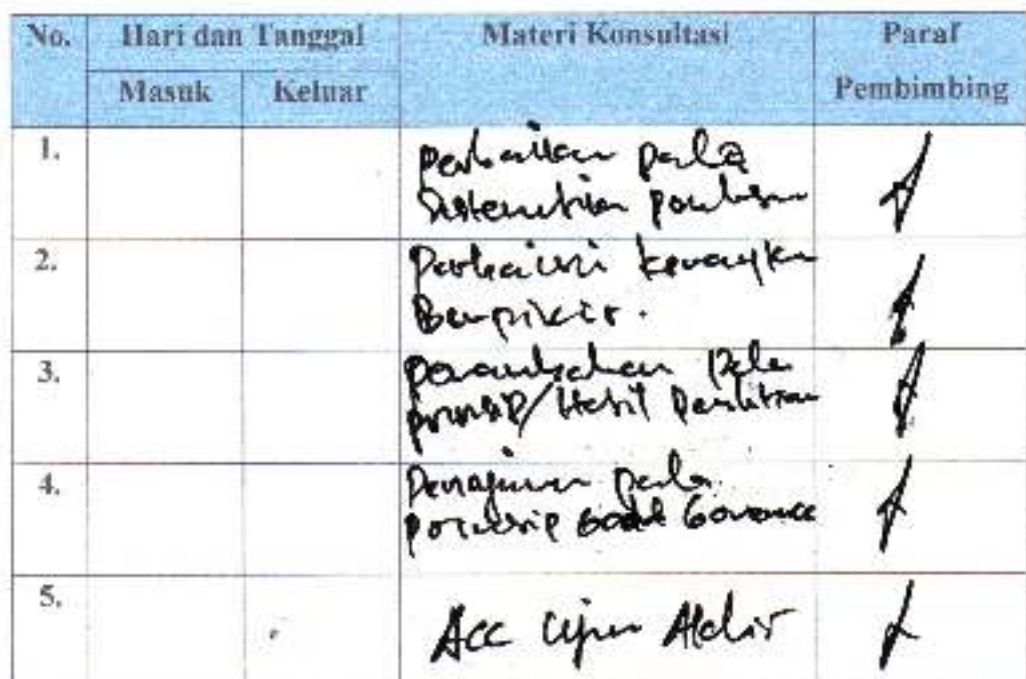 No. Hari dan Tanggal Materi Konsultasi Paraf
Masuk Keluar Pembimbing
1. Perbaikan pada
Sistematika penulisan
2. Perbaiki kerangka
Berpikir.
3. Penambahan pada
prinsip/Hasil Penelitian
4. Penajaman pada
prinsip Good Govenance
5. Acc Ujian Akhir